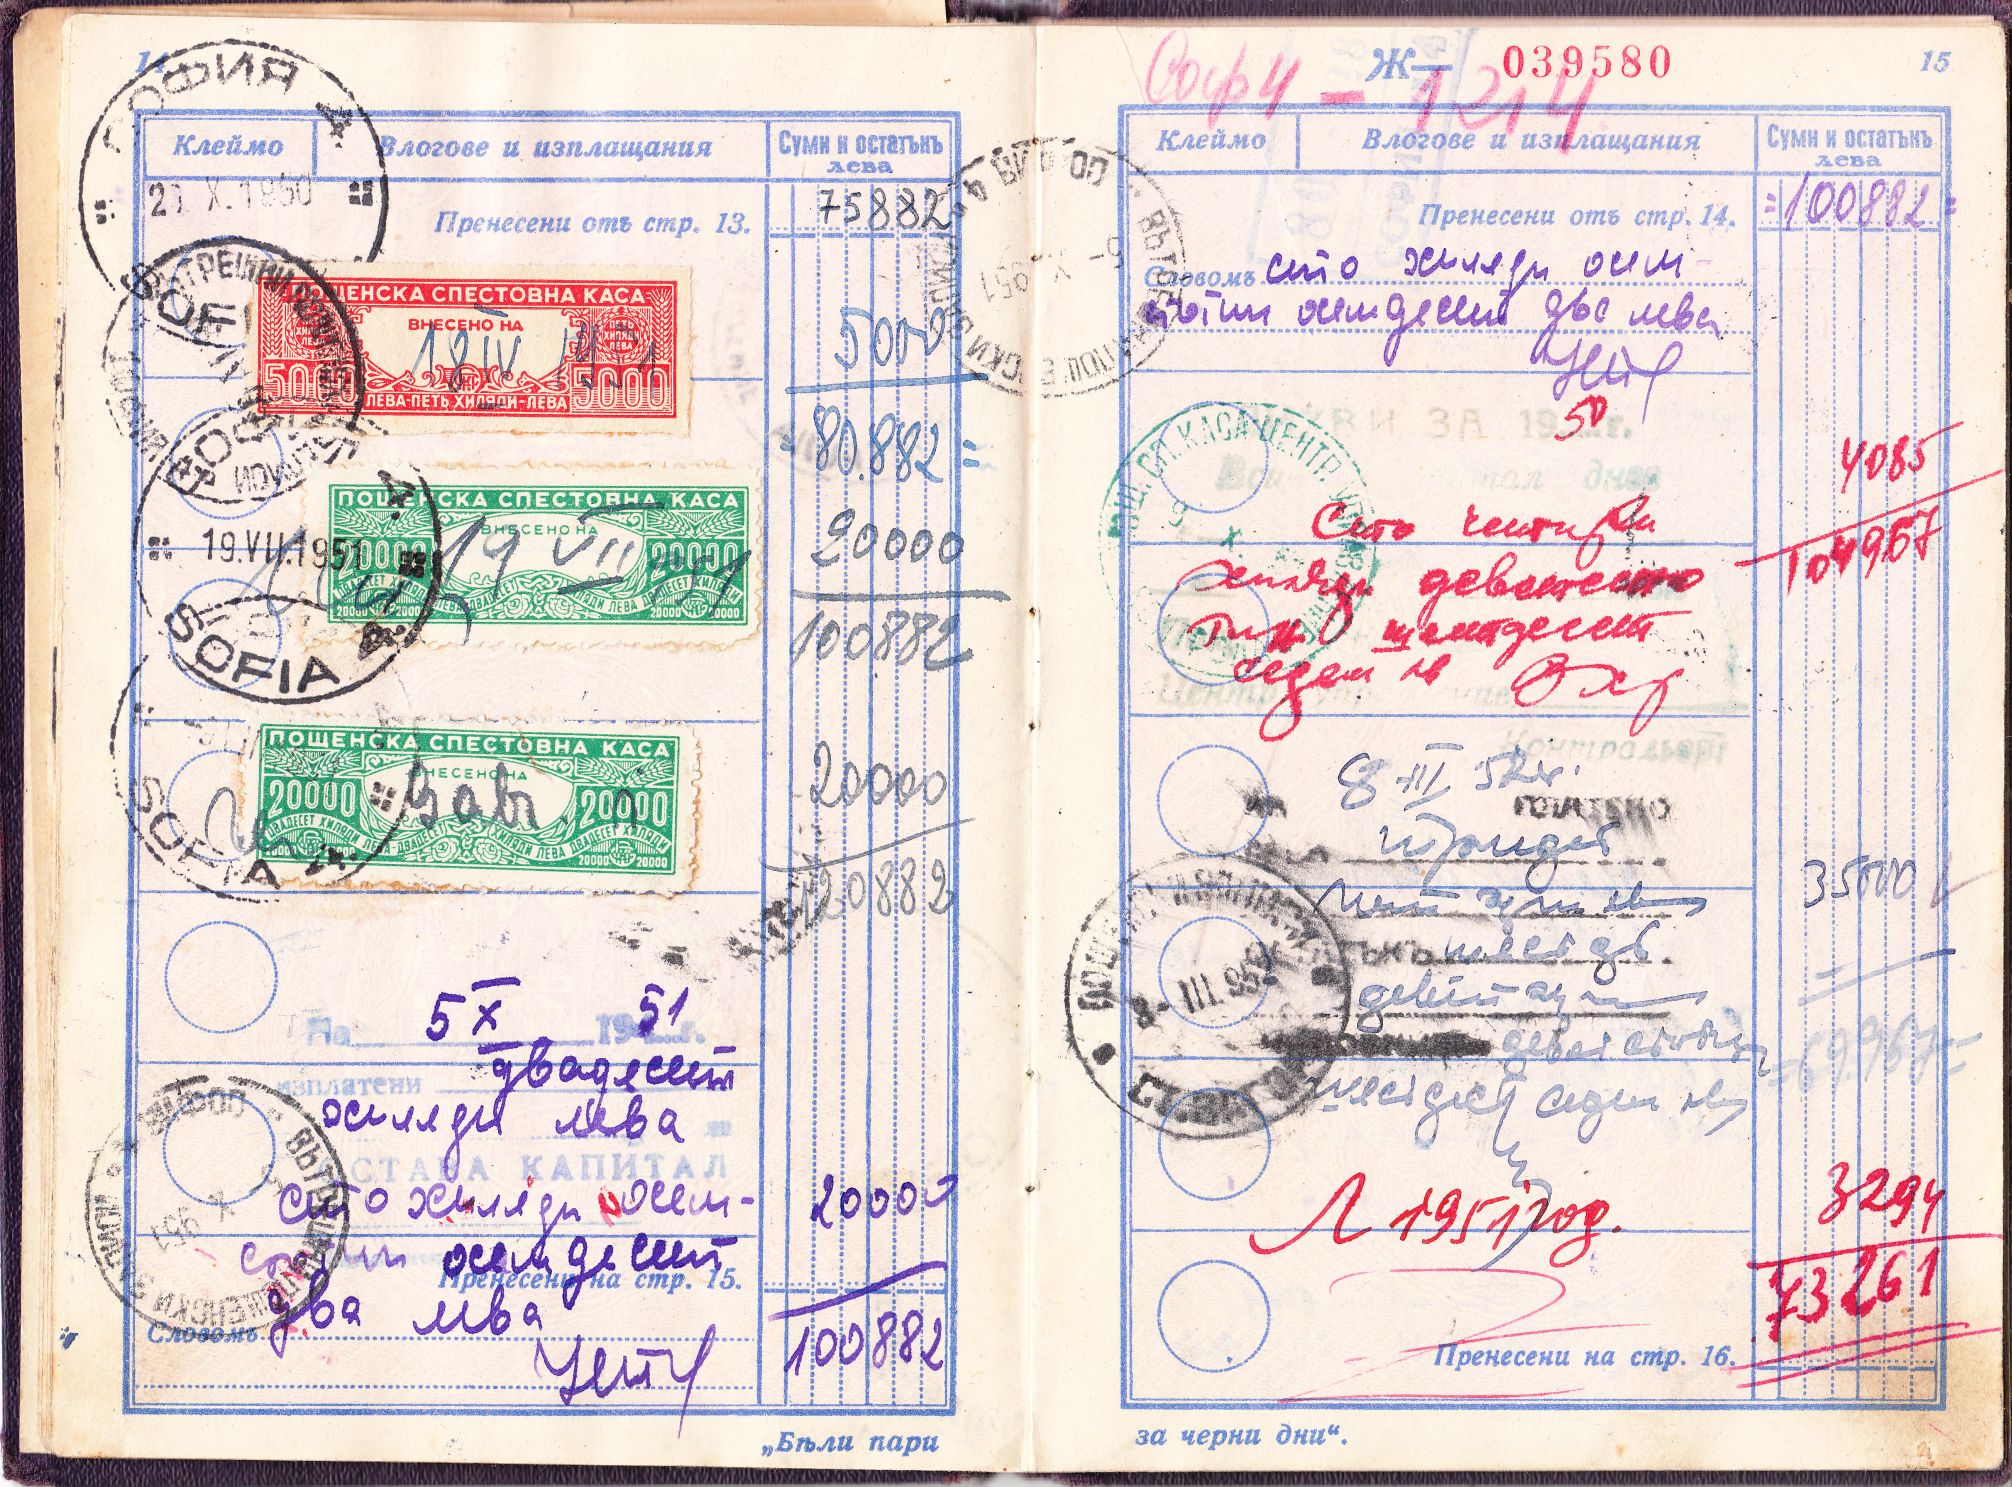 14
Клеймо
Влогове и изплащания
Суми и остатъкъ
лева
СОФИЯ 4.
X. 1950
Пренесени отъ стр. 13.
75882
SOFIA
ПОЩЕНСКА СПЕСТОВНА КАСА
ВНЕСЕНО НА
18 IV
5000
5000
ЛЕВА-ПЕТЬ ХИЛЯДИ-ЛЕВА
5000
=80.882=
ПОЩЕНСКА СПЕСТОВНА КАСА
ВНЕСЕНО НА
19 VII
20000
20000
ДВАДЕСЕТ ХИЛЯДИ ЛЕВА
20000
19.VII.1951
SOFIA 4.
100882
ПОЩЕНСКА СПЕСТОВНА КАСА
ВНЕСЕНО НА
20000
20000
ДВАДЕСЕТ ХИЛЯДИ ЛЕВА
20000
SOFIA 4.
120882
5 X 51
На 19 г.
двадесет
изплатени
хиляди лева
ОСТАВА КАПИТАЛ
сто хиляди осем-
20000
стотин осемдесет
Пренесени на стр. 15.
два лева
Словомъ
100882
„Бѣли пари
Соф 4 - 1214
Ж— 039580
15
Клеймо
Влогове и изплащания
Суми и остатъкъ
лева
Пренесени отъ стр. 14.
=100882=
Словомъ сто хиляди осем-
стотин осемдесет два лева
50
ЗА 19 г.
4085
Сто четири
104967
хиляди деветстотин
шестдесет
седем лв
Контрольоръ
8 III 52 г.
ПЛАТЕНО
тридесет
35000
пет хил лв
шестдес
девет хил
деветстотин
=69.967=
шестдесет седем лв
8- III.952
3294
Л 1951 год.
73261
Пренесени на стр. 16.
за черни дни“.